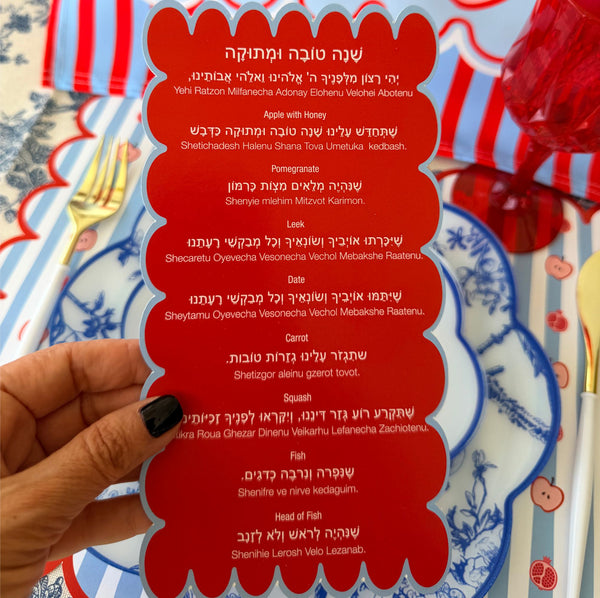 שָׁנָה טוֹבָה וּמְתוּקָה
יְהִי רָצוֹן מִלְּפָנֶיךָ ה' אֱלֹהֵינוּ וֵאלֹהֵי אֲבוֹתֵינוּ,
Yehi Ratzon Milfanecha Adonay Elohenu Velohei Abotenu
Apple with Honey
שֶׁתְּחַדֵּשׁ עָלֵינוּ שָׁנָה טוֹבָה וּמְתוּקָה כַּדְּבָשׁ
Shetichadesh Halenu Shana Tova Umetuka kedbash.
Pomegranate
שֶׁנִּהְיֶה מְלֵאִים מִצְוֹת כָּרִמּוֹן
Shenyie mlehim Mitzvot Karimon.
Leek
שֶׁיִּכָּרְתוּ אוֹיְבֶיךָ וְשׂוֹנְאֶיךָ וְכָל מְבַקְשֵׁי רָעָתֵנוּ
Shecaretu Oyevecha Vesonecha Vechol Mebakshe Raatenu.
Date
שֶׁיִּתַּמּוּ אוֹיְבֶיךָ וְשׂוֹנְאֶיךָ וְכָל מְבַקְשֵׁי רָעָתֵנוּ
Sheytamu Oyevecha Vesonecha Vechol Mebakshe Raatenu.
Carrot
שתִגְזֹר עָלֵינוּ גְזֵרוֹת טוֹבוֹת.
Shetizgor aleinu gzerot tovot.
Squash
שֶׁתִּקְרַע רוֹעַ גְּזַר דִּינֵנוּ, וְיִקָּרְאוּ לְפָנֶיךָ זָכִיּוֹתֵינוּ
Roua Ghezar Dinenu Veikarhu Lefanecha Zachiotenu.
Fish
שֶׁנִּפְרֶה וְנִרְבֶּה כְּדָגִים.
Shenifre ve nirve kedaguim.
Head of Fish
שֶׁנִּהְיֶה לְרֹאשׁ וְלֹא לְזָנָב
Shenihie Lerosh Velo Lezanab.